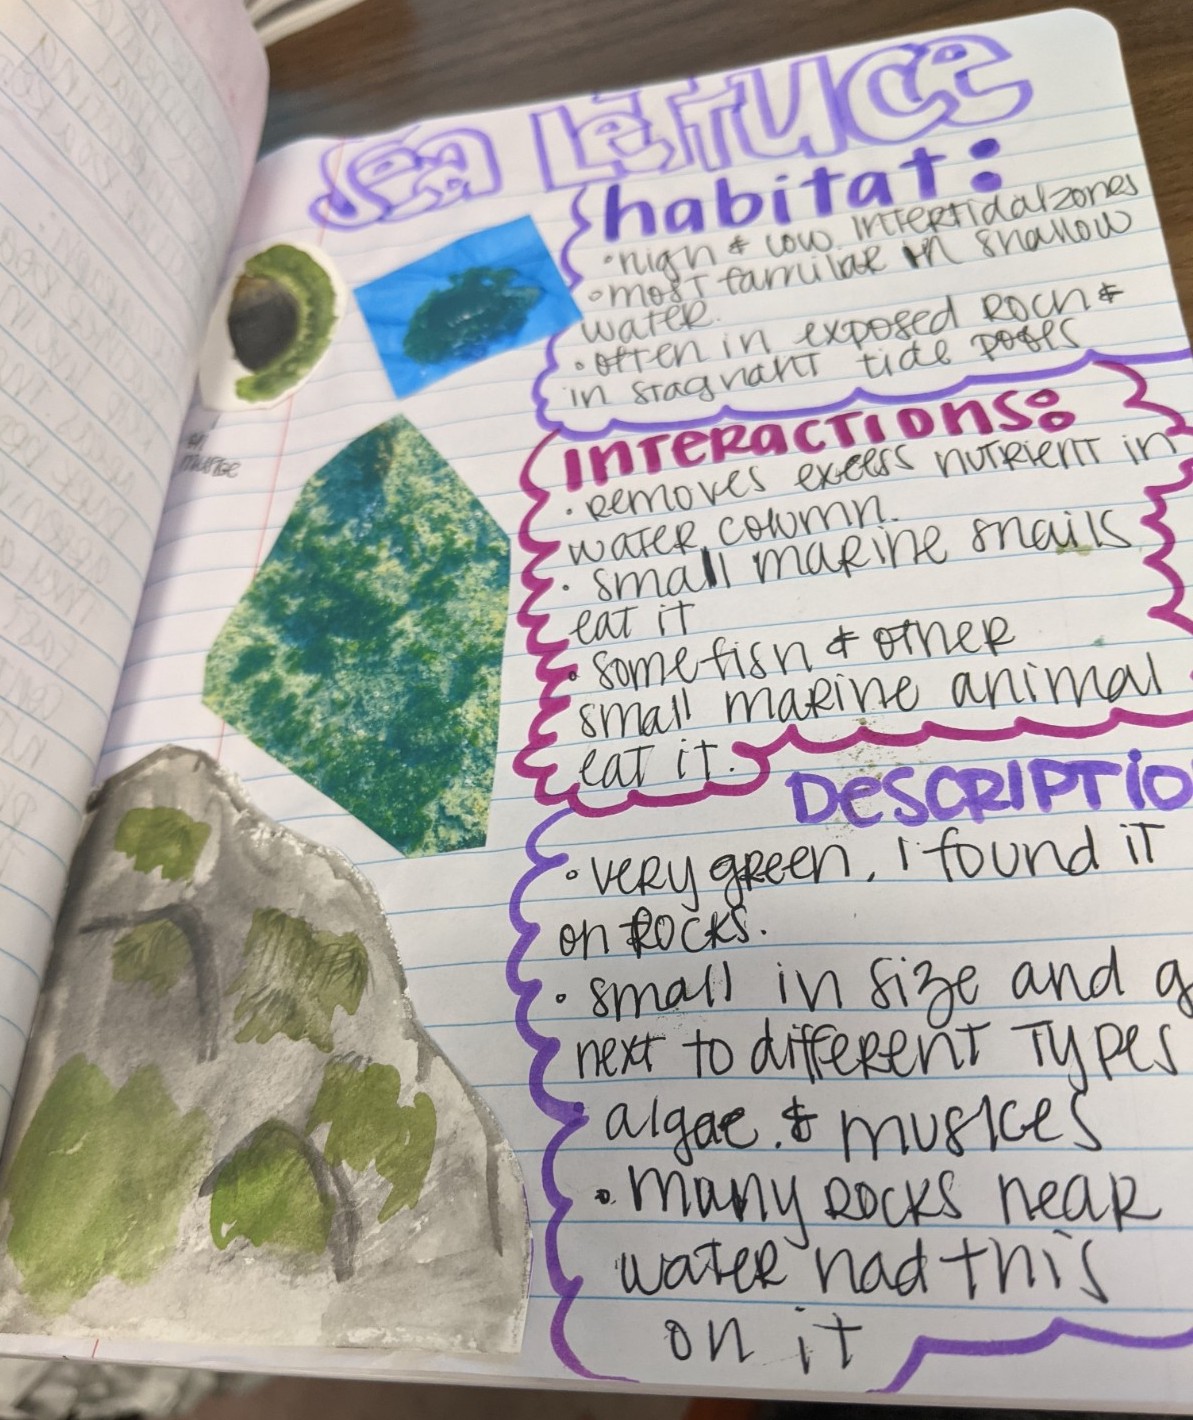 Sea Lettuce
habitat:
• high & low intertidal zones
• most familiar in shallow
water.
• often in exposed rock &
in stagnant tide pools
Interactions:
• removes excess nutrient in
water column.
• small marine snails
eat it
• some fish & other
small marine animal
eat it.
Descriptio
• very green, I found it
on rocks.
• small in size and g
next to different types
algae & muslces
• many rocks near
water had this
on it